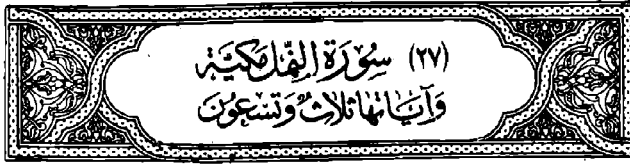 (٢٧) سُورَةِ النَّمْلِ مَكِيَّة
وَآيَاتهَا ثَلَاثٌ وَتِسْعُونَ